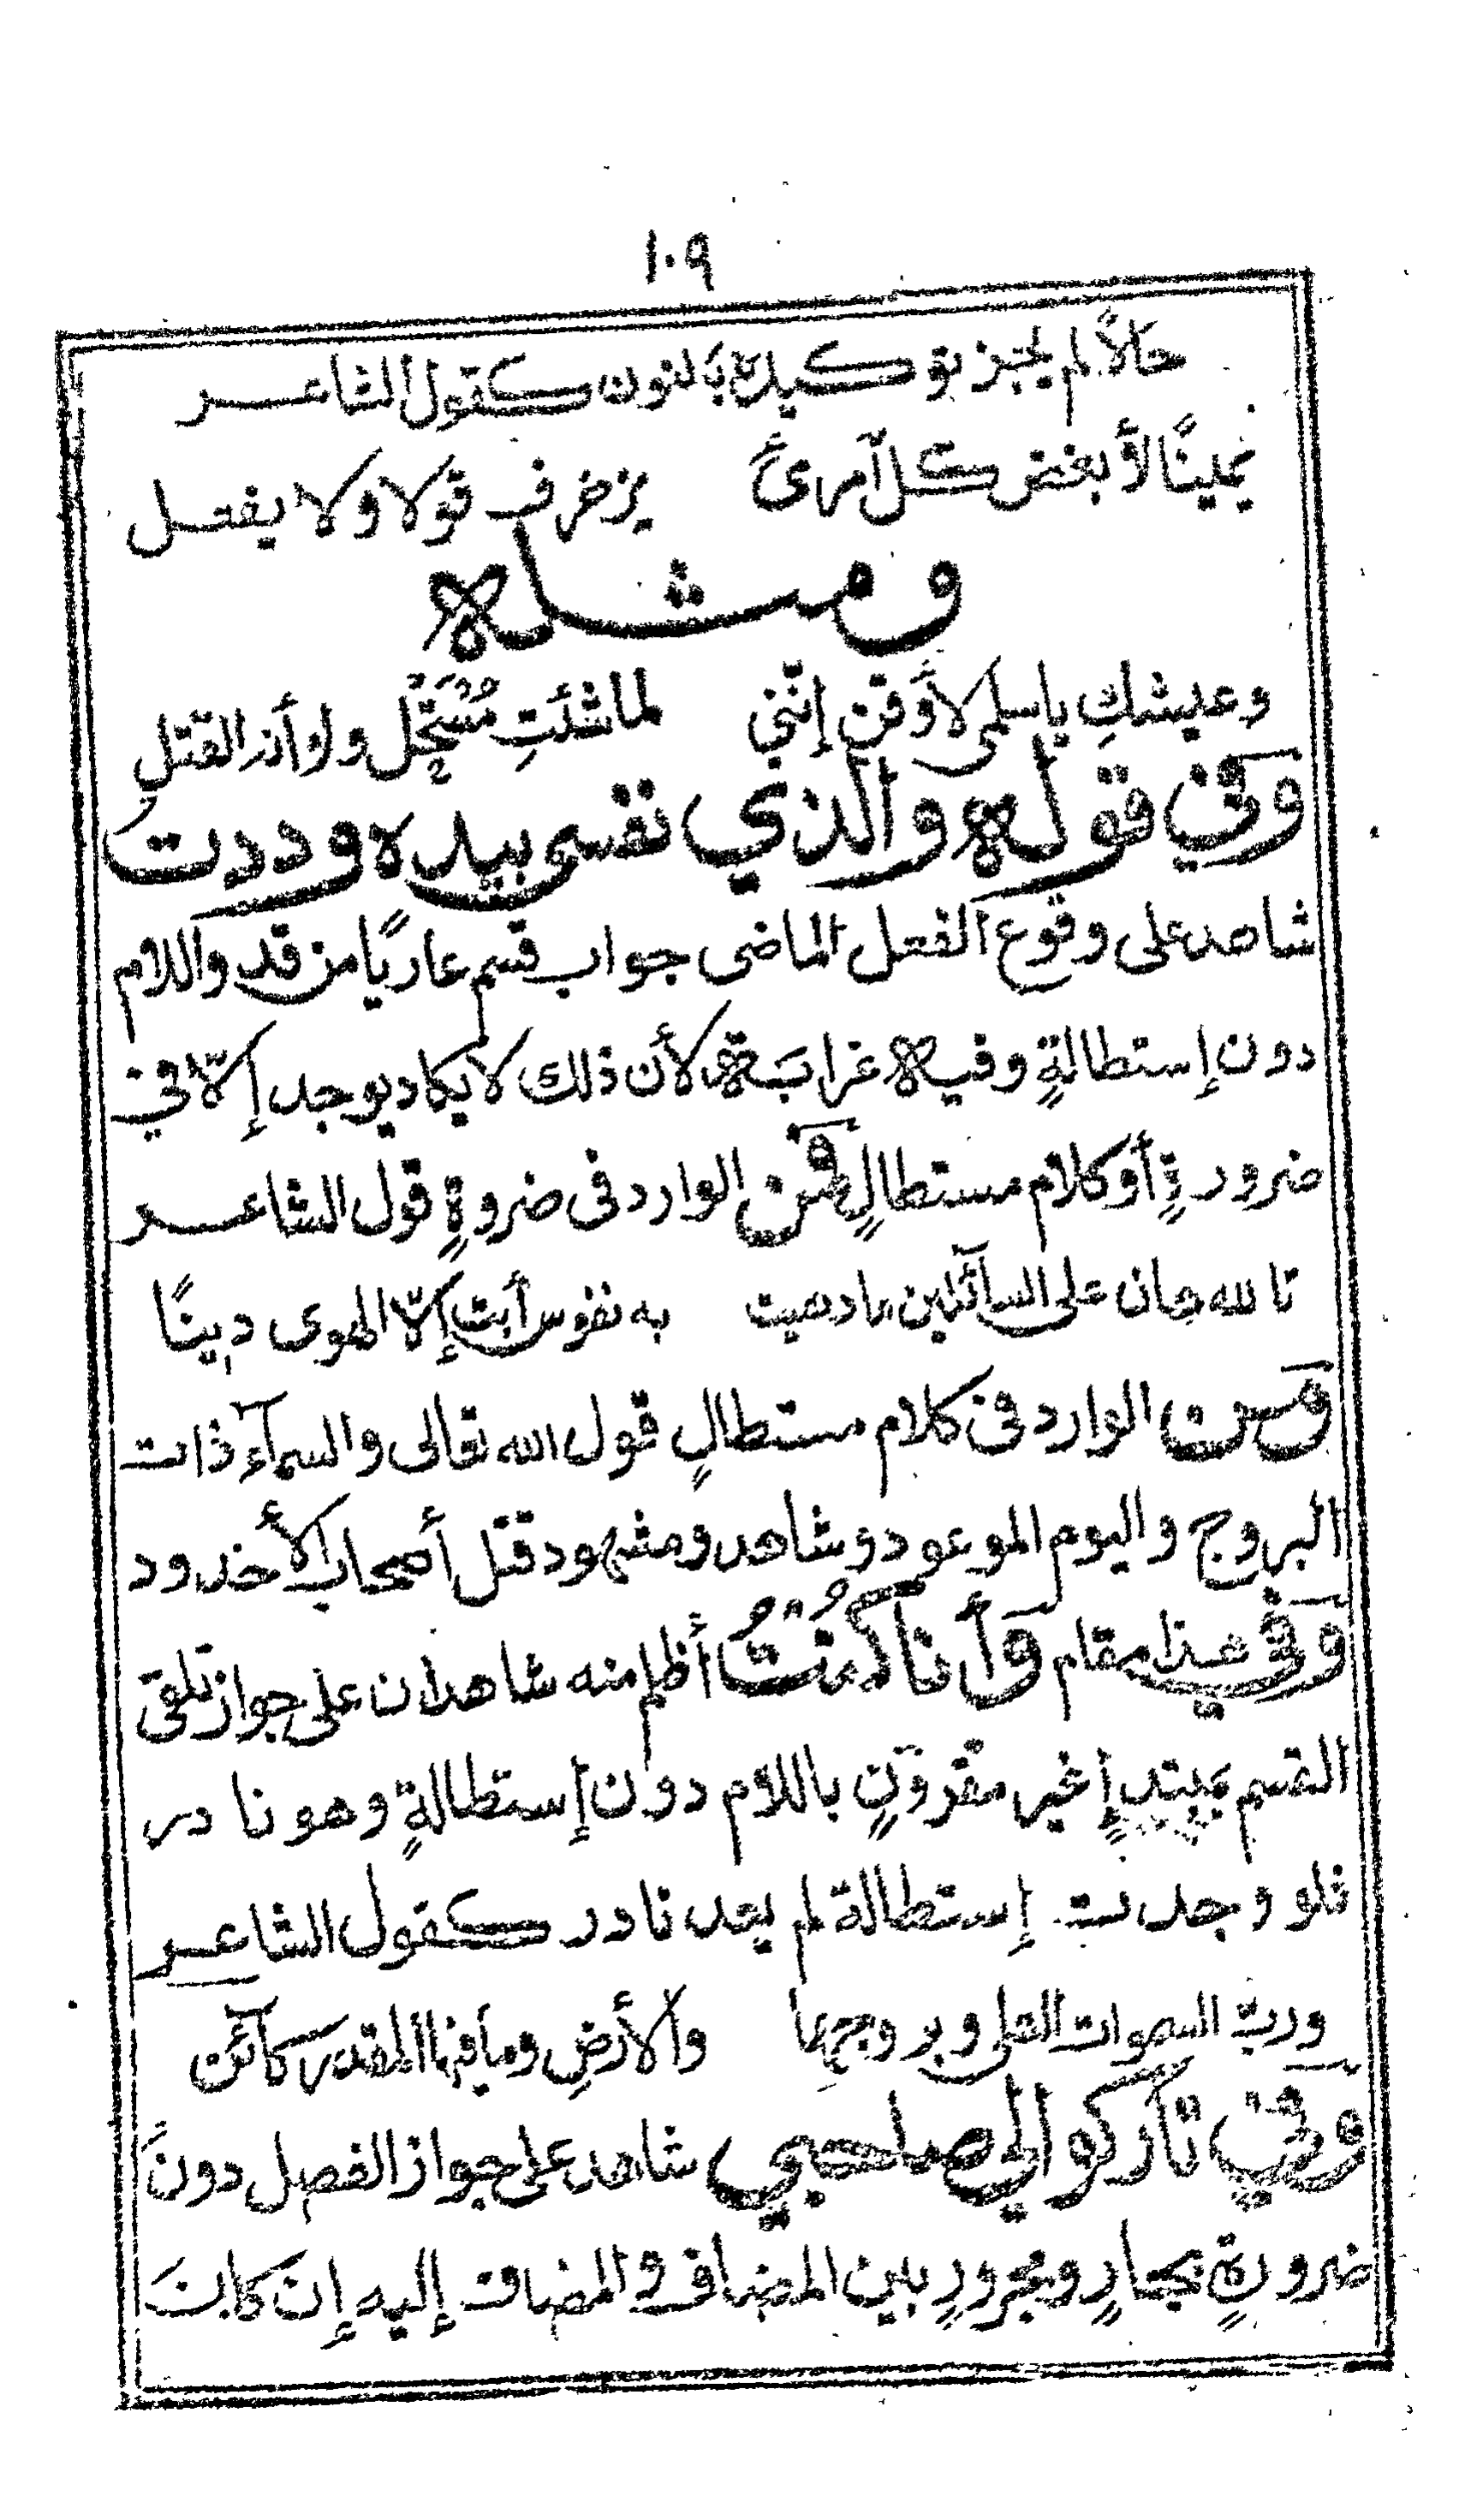 ١٠٩
حالاً لم يجز توكيده بالنون كقول الشاعر
يمينًا لأبغض كل آمرئً يزخرف قولا ولا يفعل
ومثاله
وعيشكِ ياسلمى لأوقن إنّني لما شئتِ مُسْتَحْلٍ ولو أنه القتل
وَفي قوله والذي نفسى بيده وددتُ
شاهد على وقوع الفعل الماضى جواب قسم عاريًا من قد واللام
دون إستطالةٍ وفيه غرابَة لأن ذلك لا يكاد يوجد إلّا في
ضرورةٍ أو كلام مستطالٍ فمن الوارد فى ضروةٍ قول الشاعر
تالله هان على السآئلين مادهيت به نفوس أبت إلّا الهوى دينًا
ومن الوارد في كلام مستطالٍ قول الله تعالى والسمآء ذات
البروج واليوم الموعود وشاهد ومشهود قتل أصحاب الأخدود
وَفي هذا مقام وَأنا كُنْتُ أظلم منه شاهدان على جواز تلقى
القسم بمبتدإٍ غير مقرونٍ باللام دون إستطالةٍ وهو نادر
فلو وجدت إستطالة لم يعد نادر كقول الشاعر
وربّ السموات العلى وبروجها والأرضِ ومافيها المقدر كآئن
وَفي تاركوالي صاحبي شاهد على جواز الفصل دونَ
ضرورةٍ بجارٍ ومجرورٍ بين المضاف والمضاف إليه إن كانَ